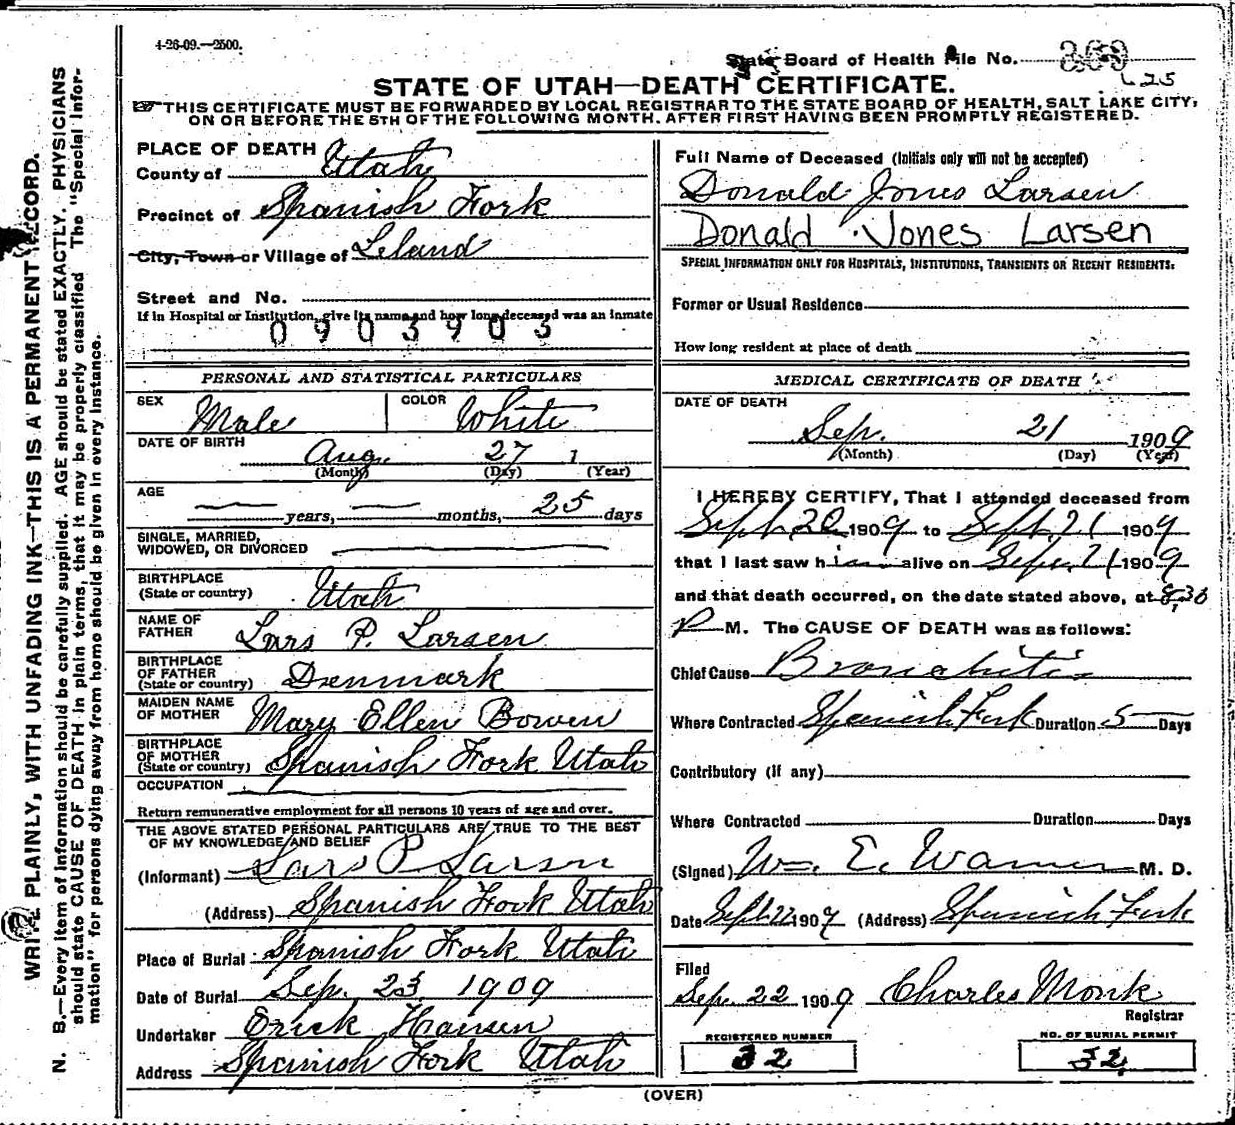 4-26-09.—2500.
State Board of Health File No.
625
STATE OF UTAH—DEATH CERTIFICATE.
THIS CERTIFICATE MUST BE FORWARDED BY LOCAL REGISTRAR TO THE STATE BOARD OF HEALTH, SALT LAKE CITY,
ON OR BEFORE THE 5TH OF THE FOLLOWING MONTH. AFTER FIRST HAVING BEEN PROMPTLY REGISTERED.
WRITE PLAINLY, WITH UNFADING INK—THIS IS A PERMANENT RECORD.
N. B.—Every item of information should be carefully supplied. AGE should be stated EXACTLY. PHYSICIANS
should state CAUSE OF DEATH in plain terms, that it may be properly classified. The "Special Infor-
mation" for persons dying away from home should be given in every instance.
PLACE OF DEATH
County of Utah
Precinct of Spanish Fork
City, Town or Village of Leland
Street and No.
If in Hospital or Institution, give its name and how long deceased was an inmate
0903903
PERSONAL AND STATISTICAL PARTICULARS
SEX Male COLOR White
DATE OF BIRTH
Aug. 27 1
(Month) (Day) (Year)
AGE
years, months, 25 days
SINGLE, MARRIED,
WIDOWED, OR DIVORCED
BIRTHPLACE
(State or country) Utah
NAME OF
FATHER Lars P. Larsen
BIRTHPLACE
OF FATHER
(State or country) Denmark
MAIDEN NAME
OF MOTHER Mary Ellen Bowen
BIRTHPLACE
OF MOTHER
(State or country) Spanish Fork Utah
OCCUPATION
Return remunerative employment for all persons 10 years of age and over.
THE ABOVE STATED PERSONAL PARTICULARS ARE TRUE TO THE BEST
OF MY KNOWLEDGE AND BELIEF
(Informant) Lars P Larsen
(Address) Spanish Fork Utah
Place of Burial Spanish Fork Utah
Date of Burial Sep. 23 1909
Undertaker Erick Hansen
Address Spanish Fork Utah
Full Name of Deceased (Initials only will not be accepted)
Donald Jones Larsen
Donald Jones Larsen
SPECIAL INFORMATION ONLY FOR HOSPITALS, INSTITUTIONS, TRANSIENTS OR RECENT RESIDENTS:
Former or Usual Residence
How long resident at place of death
MEDICAL CERTIFICATE OF DEATH
DATE OF DEATH
Sep. 21 1909
(Month) (Day) (Year)
I HEREBY CERTIFY, That I attended deceased from
Sept 20 1909 to Sept 21 1909
that I last saw him alive on Sep. 21 1909
and that death occurred, on the date stated above, at 8,30
P M. The CAUSE OF DEATH was as follows:
Chief Cause Bronchitis
Where Contracted Spanish Fork Duration 5 Days
Contributory (if any)
Where Contracted Duration Days
(Signed) Wm. E. Warner M. D.
Date Sept 22 1909 (Address) Spanish Fork
Filed
Sep. 22 1909 Charles Monk
Registrar
REGISTERED NUMBER NO. OF BURIAL PERMIT
32 32
(OVER)